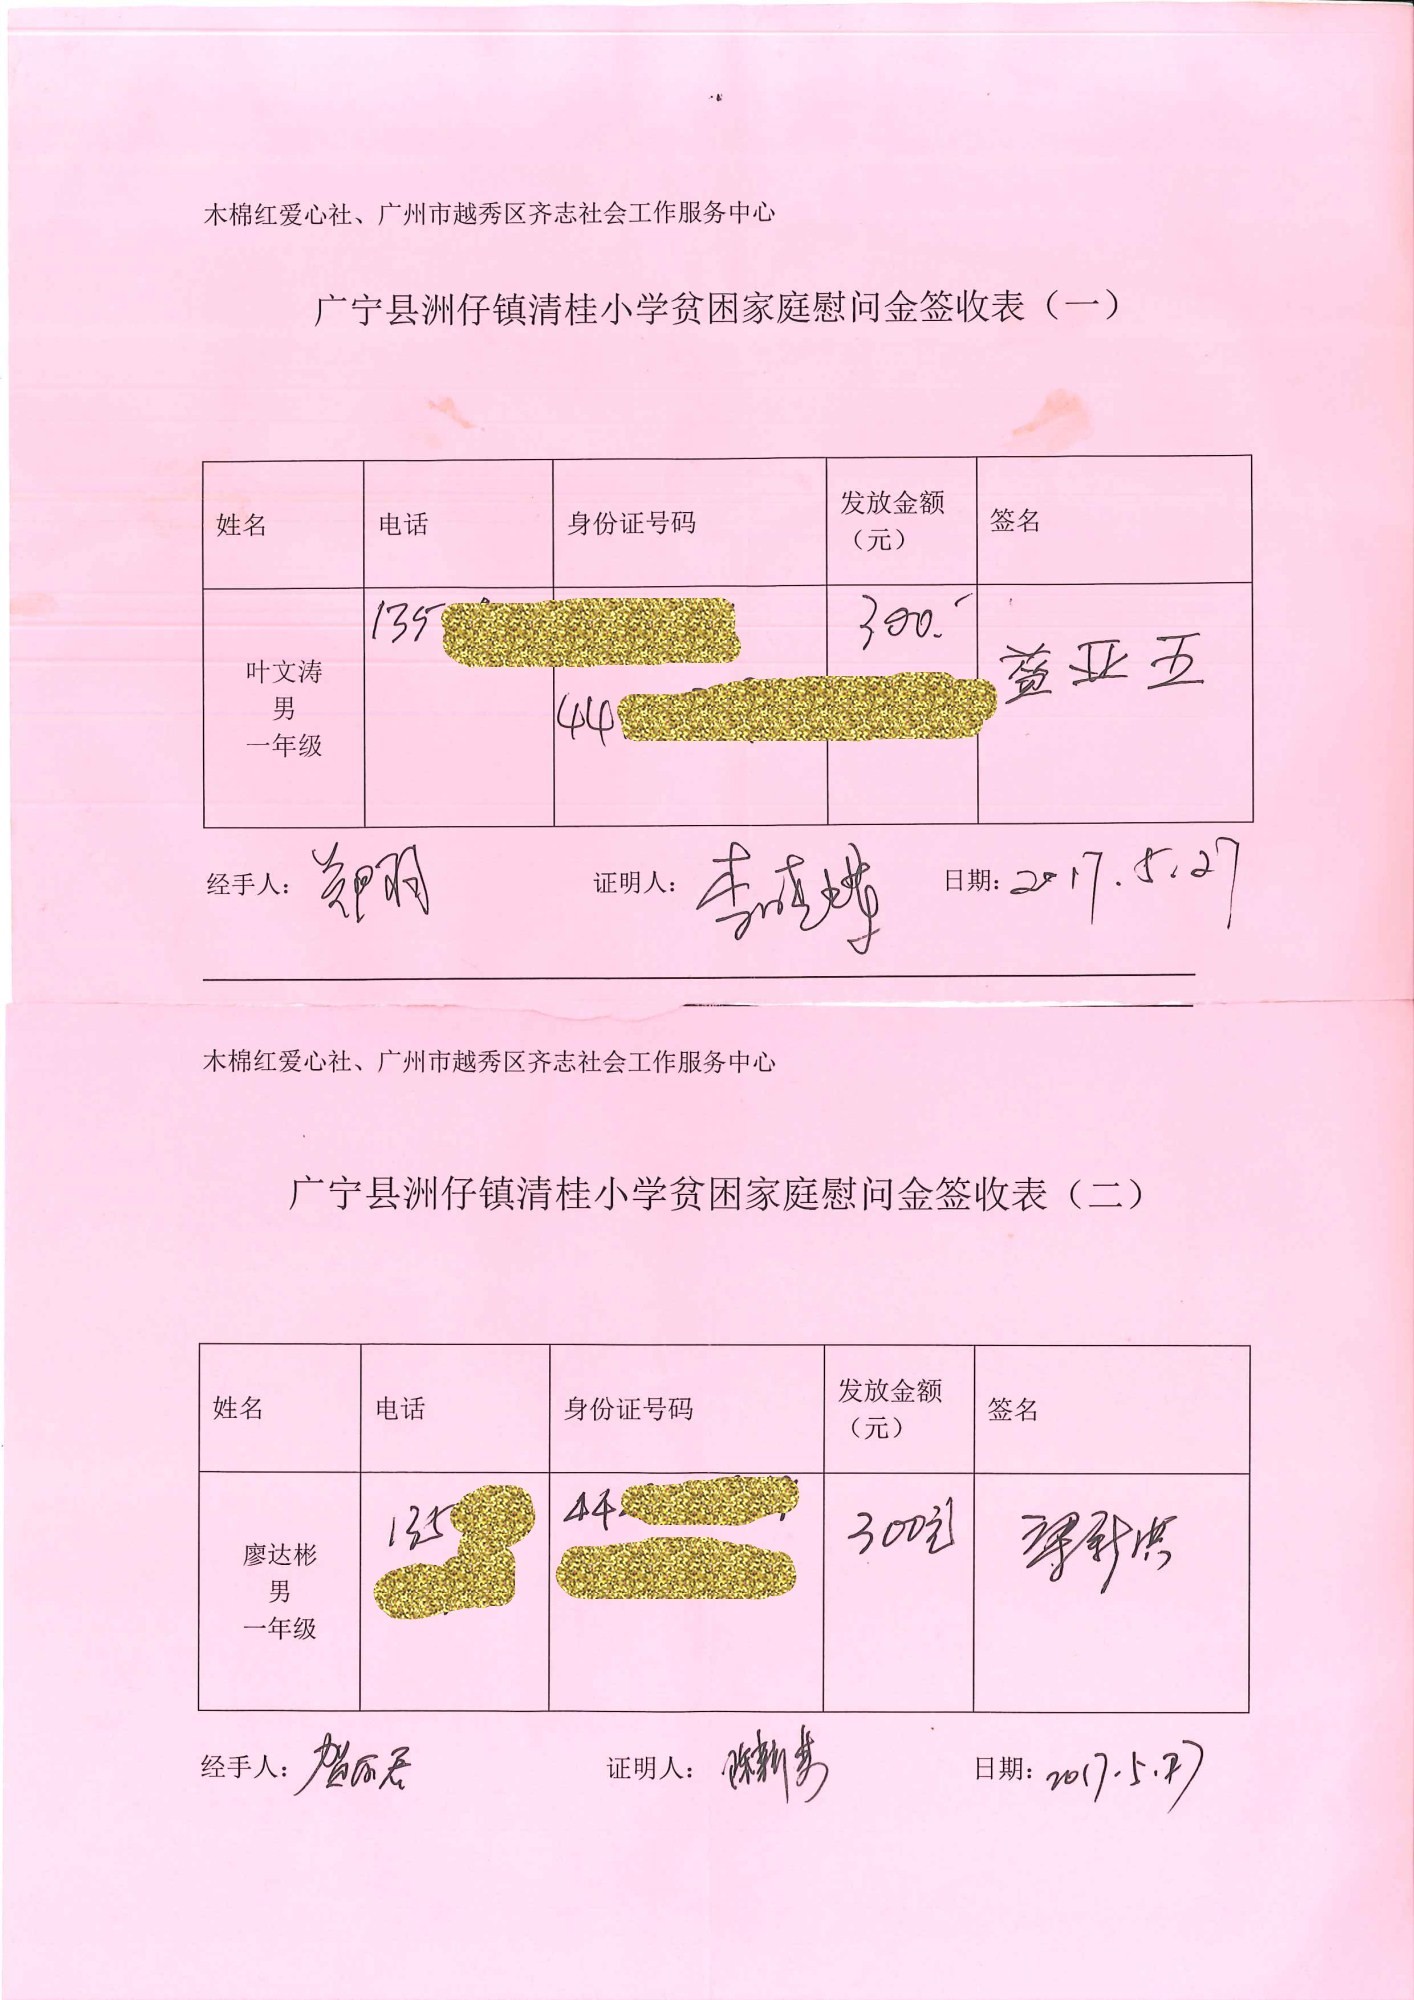 木棉红爱心社、广州市越秀区齐志社会工作服务中心
广宁县洲仔镇清桂小学贫困家庭慰问金签收表（一）
姓名 电话 身份证号码 发放金额（元） 签名
叶文涛
男
一年级
135
44
300.-
亚五
经手人： 郑羽 证明人： 李 日期：2017.5.27
木棉红爱心社、广州市越秀区齐志社会工作服务中心
广宁县洲仔镇清桂小学贫困家庭慰问金签收表（二）
姓名 电话 身份证号码 发放金额（元） 签名
廖达彬
男
一年级
135
44
300元
经手人： 证明人： 日期：2017.5.27